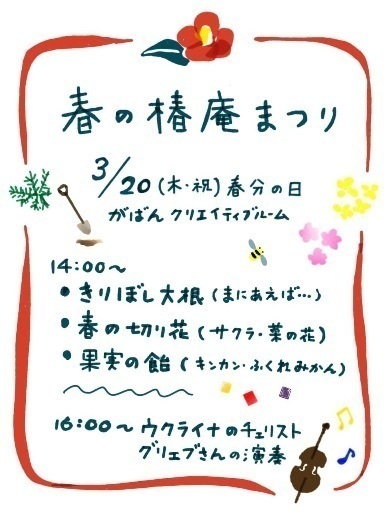 春の椿庵まつり
3/20(木・祝)春分の日
がばん クリエイティブルーム
14:00~
• きりぼし大根(まにあえば…)
• 春の切り花(サクラ・菜の花)
• 果実の飴(キンカン・ふくれみかん)
16:00~ ウクライナのチェリスト
グリエブさんの演奏